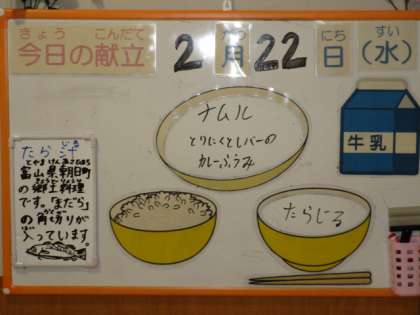 きょう こんだて
今日の献立
2 がつ 22 にち すい
月 日 (水)
ナムル
とりにくとレバーの
カレーふうみ
牛乳
たらじる
たら汁
じる
とやまけんあさひまち
富山県朝日町
きょうどりょうり
の郷土料理
です。「まだら」
かくぎ
の角切りが
はい
入っています。